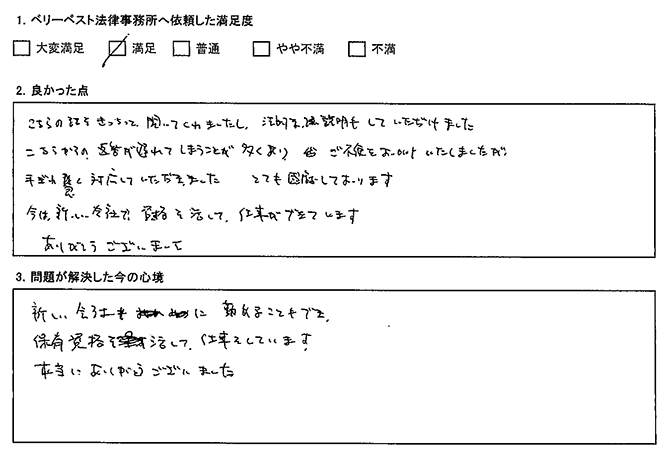 1. ベリーベスト法律事務所へ依頼した満足度
大変満足 満足 普通 やや不満 不満
2. 良かった点
こちらの話をきっちりと聞いてくれましたし、法的な説明もしていただけました
こちらからの返答が遅れてしまうことが多くあり ご不便をおかけいたしましたが、
手際良く対応していただきました とても感謝しております
今は新しい会社で資格を活して、仕事ができています
ありがとうございました
3. 問題が解決した今の心境
新しい会社に勤めることもでき、
保有資格を活して、仕事をしています。
本当にありがとうございました